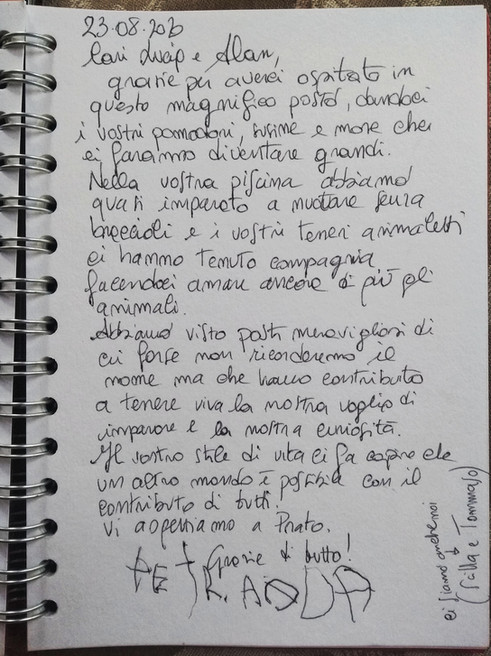 23.08.20
Cari Lucio e Alan,
grazie per averci ospitato in
questo magnifico posto, dandoci
i vostri pomodori, susine e more che
ci faranno diventare grandi.
Nella vostra piscina abbiamo
quasi imparato a nuotare senza
braccioli e i vostri teneri animaletti
ci hanno tenuto compagnia
facendoci amare ancora di più gli
animali.
Abbiamo visto posti meravigliosi di
cui forse non ricorderemo il
nome ma che hanno contributo
a tenere viva la nostra voglia di
imparare e la nostra curiosità.
Il vostro stile di vita ci fa capire che
un altro mondo è possibile con il
contributo di tutti.
Vi aspettiamo a Prato.
Grazie di tutto!
ci siamo anche noi
(Scilla e Tommaso)